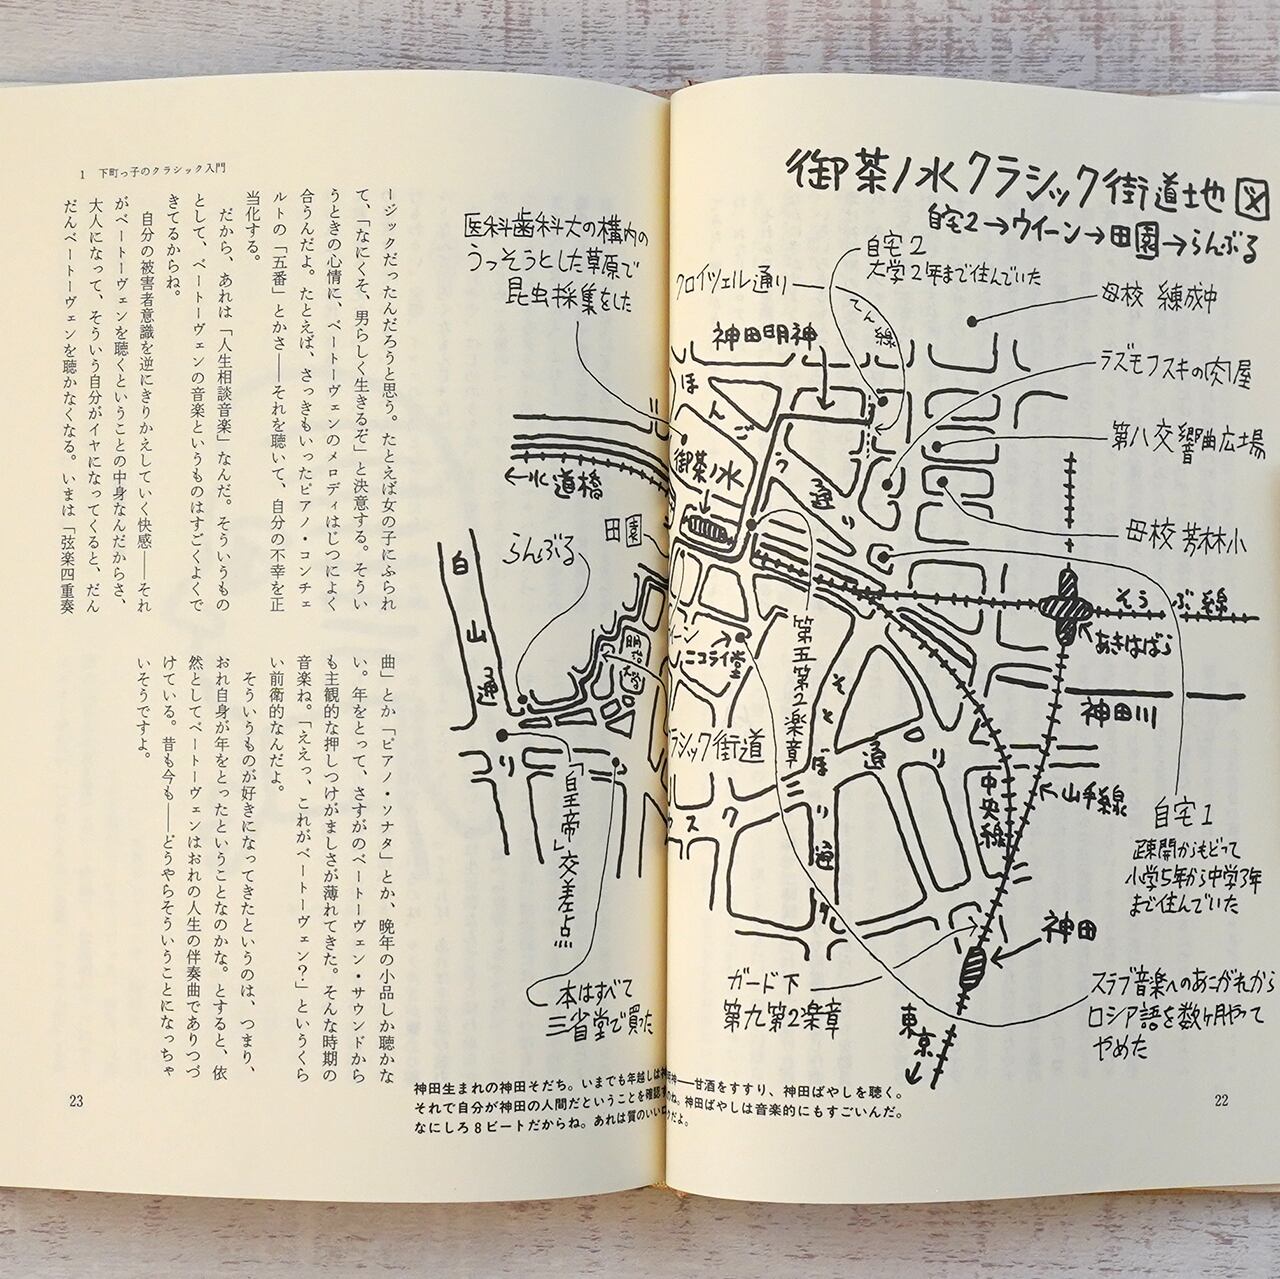 御茶ノ水クラシック街道地図
自宅2→ウイーン→田園→らんぶる
自宅2
大学2年まで住んでいた
クロイツェル通り
でん線
母校 練成中
神田明神
ラズモフスキの肉屋
第八交響曲広場
母校 芳林小
ほんごう通り
御茶ノ水
そうぶ線
あきはばら
神田川
第五第2楽章
ニコライ堂
そとぼり通り
中央線
山手線
自宅1
疎開からもどって
小学5年から中学3年
まで住んでいた
神田
ガード下
第九第2楽章
東京
スラブ音楽へのあこがれから
ロシア語を数ヶ月やって
やめた
医科歯科大の構内の
うっそうとした草原で
昆虫採集をした
←水道橋
田園
らんぶる
白山通り
明治大学
クラシック街道
「皇帝」交差点
本はすべて
三省堂で買った
神田生まれの神田そだち。いまでも年越しは神田明神——甘酒をすすり、神田ばやしを聴く。
それで自分が神田の人間だということを確認するのね。神田ばやしは音楽的にもすごいんだ。
なにしろ8ビートだからね。あれは質のいいロックだよ。
22
1 下町っ子のクラシック入門
ージックだったんだろうと思う。たとえば女の子にふられ
て、「なにくそ、男らしく生きるぞ」と決意する。そうい
うときの心情に、ベートーヴェンのメロディはじつによく
合うんだよ。たとえば、さっきもいったピアノ・コンチェ
ルトの「五番」とかさ——それを聴いて、自分の不幸を正
当化する。
だから、あれは「人生相談音楽」なんだ。そういうもの
として、ベートーヴェンの音楽というものはすごくよくで
きてるからね。
自分の被害者意識を逆にきりかえしていく快感——それ
がベートーヴェンを聴くということの中身なんだからさ、
大人になって、そういう自分がイヤになってくると、だん
だんベートーヴェンを聴かなくなる。いまは「弦楽四重奏
曲」とか「ピアノ・ソナタ」とか、晩年の小品しか聴かな
い。年をとって、さすがのベートーヴェン・サウンドから
も主観的な押しつけがましさが薄れてきた。そんな時期の
音楽ね。「ええっ、これがベートーヴェン?」というくら
い前衛的なんだよ。
そういうものが好きになってきたというのは、つまり、
おれ自身が年をとったということなのかな。とすると、依
然としてベートーヴェンはおれの人生の伴奏曲でありつづ
けている。昔も今も——どうやらそういうことになっちゃ
いそうですよ。
23